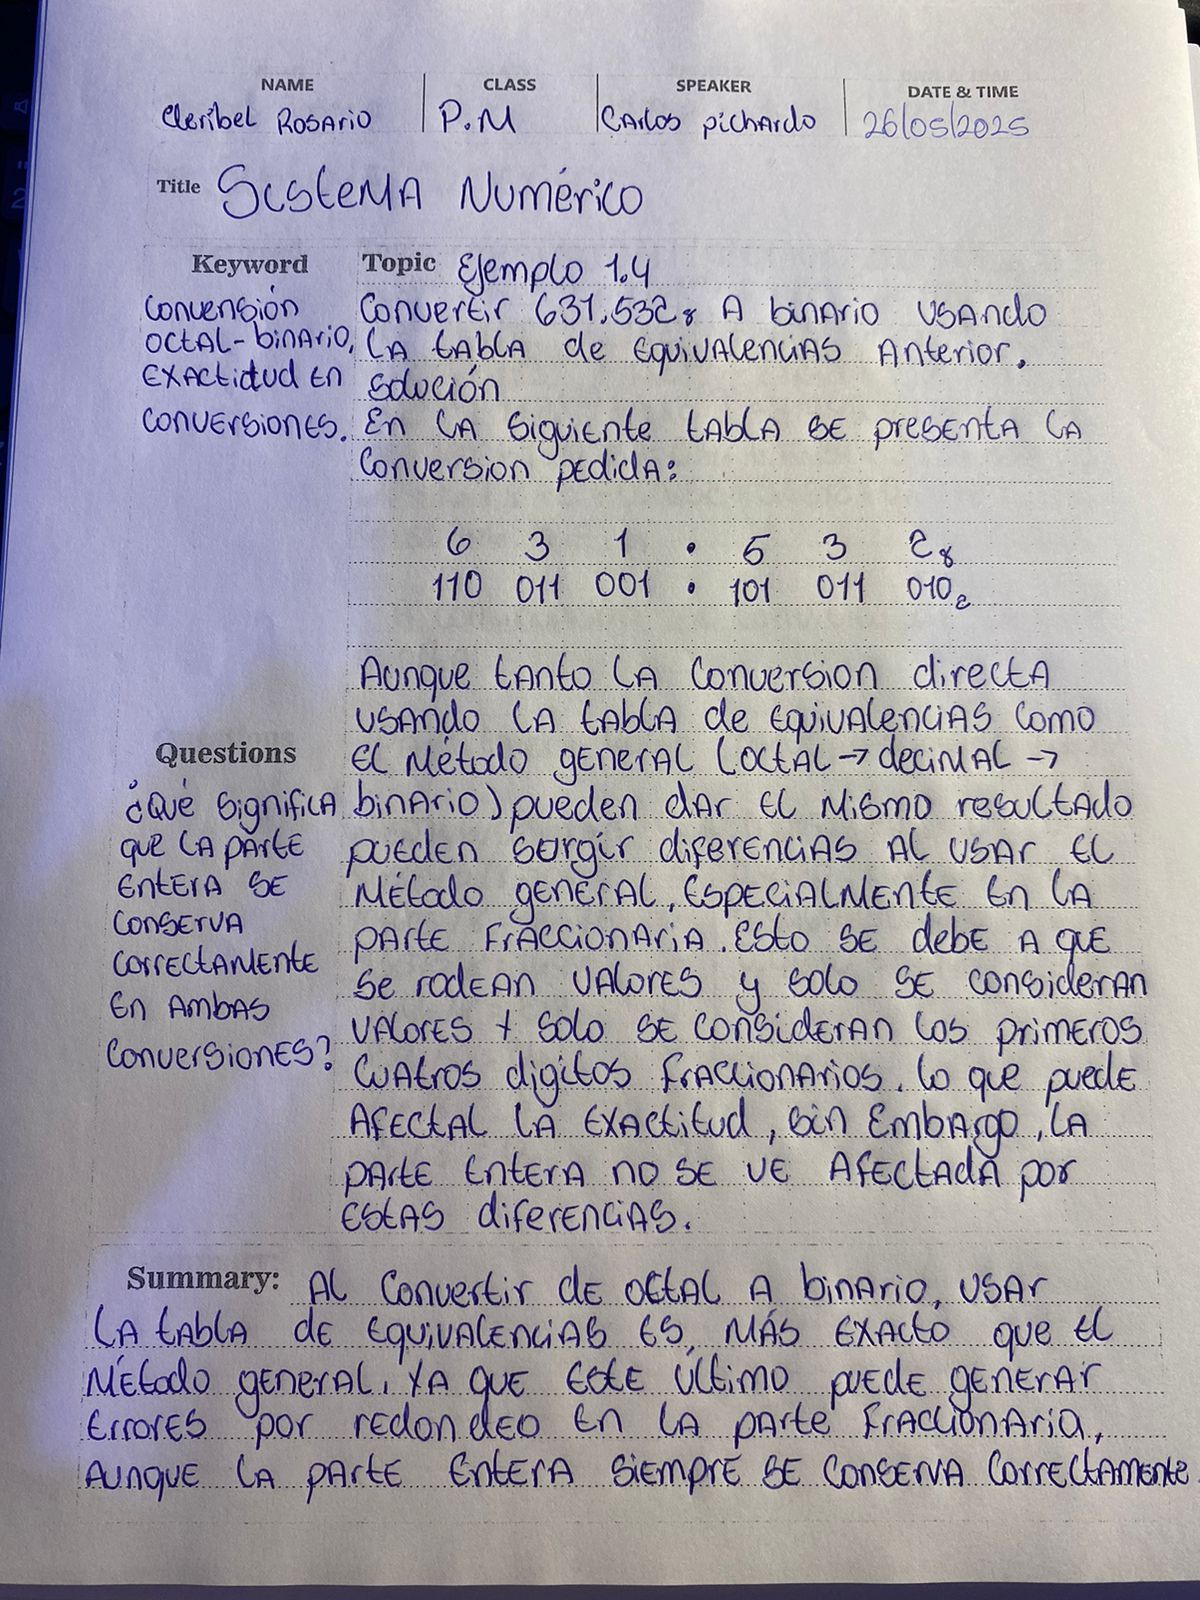 NAME CLASS SPEAKER DATE & TIME
Cleribel Rosario P.M Carlos pichardo 26/05/2025
Title Sistema Numérico
Keyword
Convensión
octal-binario,
exactidud en
conversiones.
Topic Ejemplo 1.4
Convertir 631.532₈ a binario usando
la tabla de equivalencias anterior.
solución
En la siguiente tabla se presenta la
conversion pedida:
6 3 1 . 5 3 2₈
110 011 001 . 101 011 010₂
Aunque tanto la conversion directa
usando la tabla de equivalencias como
el Método general (octal → decimal →
binario) pueden dar el mismo resultado
pueden surgir diferencias al usar el
Método general, especialmente en la
parte fraccionaria. Esto se debe a que
se rodean valores y solo se consideran
valores y solo se consideran los primeros
cuatros digitos fraccionarios. lo que puede
afectal la exactitud, sin embargo, la
parte entera no se ve afectada por
estas diferencias.
Questions
¿Qué significa
que la parte
entera se
conserva
correctamente
en ambas
conversiones?
Summary: Al convertir de octal a binario, usar
la tabla de equivalencias es, más exacto que el
Método general, ya que este último puede generar
errores por redondeo en la parte fraccionaria,
aunque la parte entera siempre se conserva correctamente.